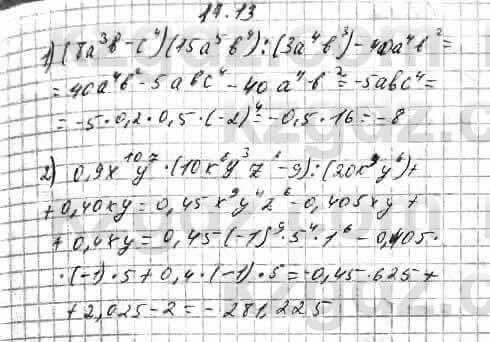 14.13
1) (8a³b - c⁴)(15a⁵b⁴) : (3a⁴b³) - 40a⁴b² =
= 40a⁴b² - 5abc⁴ - 40a⁴b² = -5abc⁴ =
= -5·0,2·0,5·(-2)⁴ = -0,5·16 = -8
2) 0,9x¹⁰y⁷·(10x⁸y³z⁶ - 9) : (20x⁹y⁶) +
+ 0,40xy = 0,45x⁹y⁴z⁶ - 0,405xy +
+ 0,4xy = 0,45(-1)⁹·5⁴·1⁶ - 0,405·
·(-1)·5 + 0,4·(-1)·5 = -0,45·625 +
+ 2,025 - 2 = -281,225